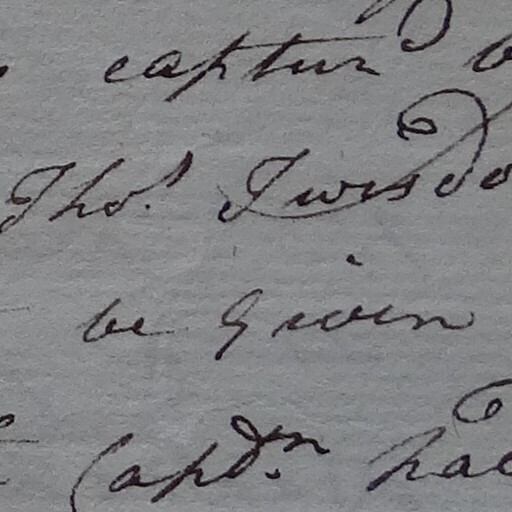 captur'd
Thos. Twisdo
be given
Capt.n had